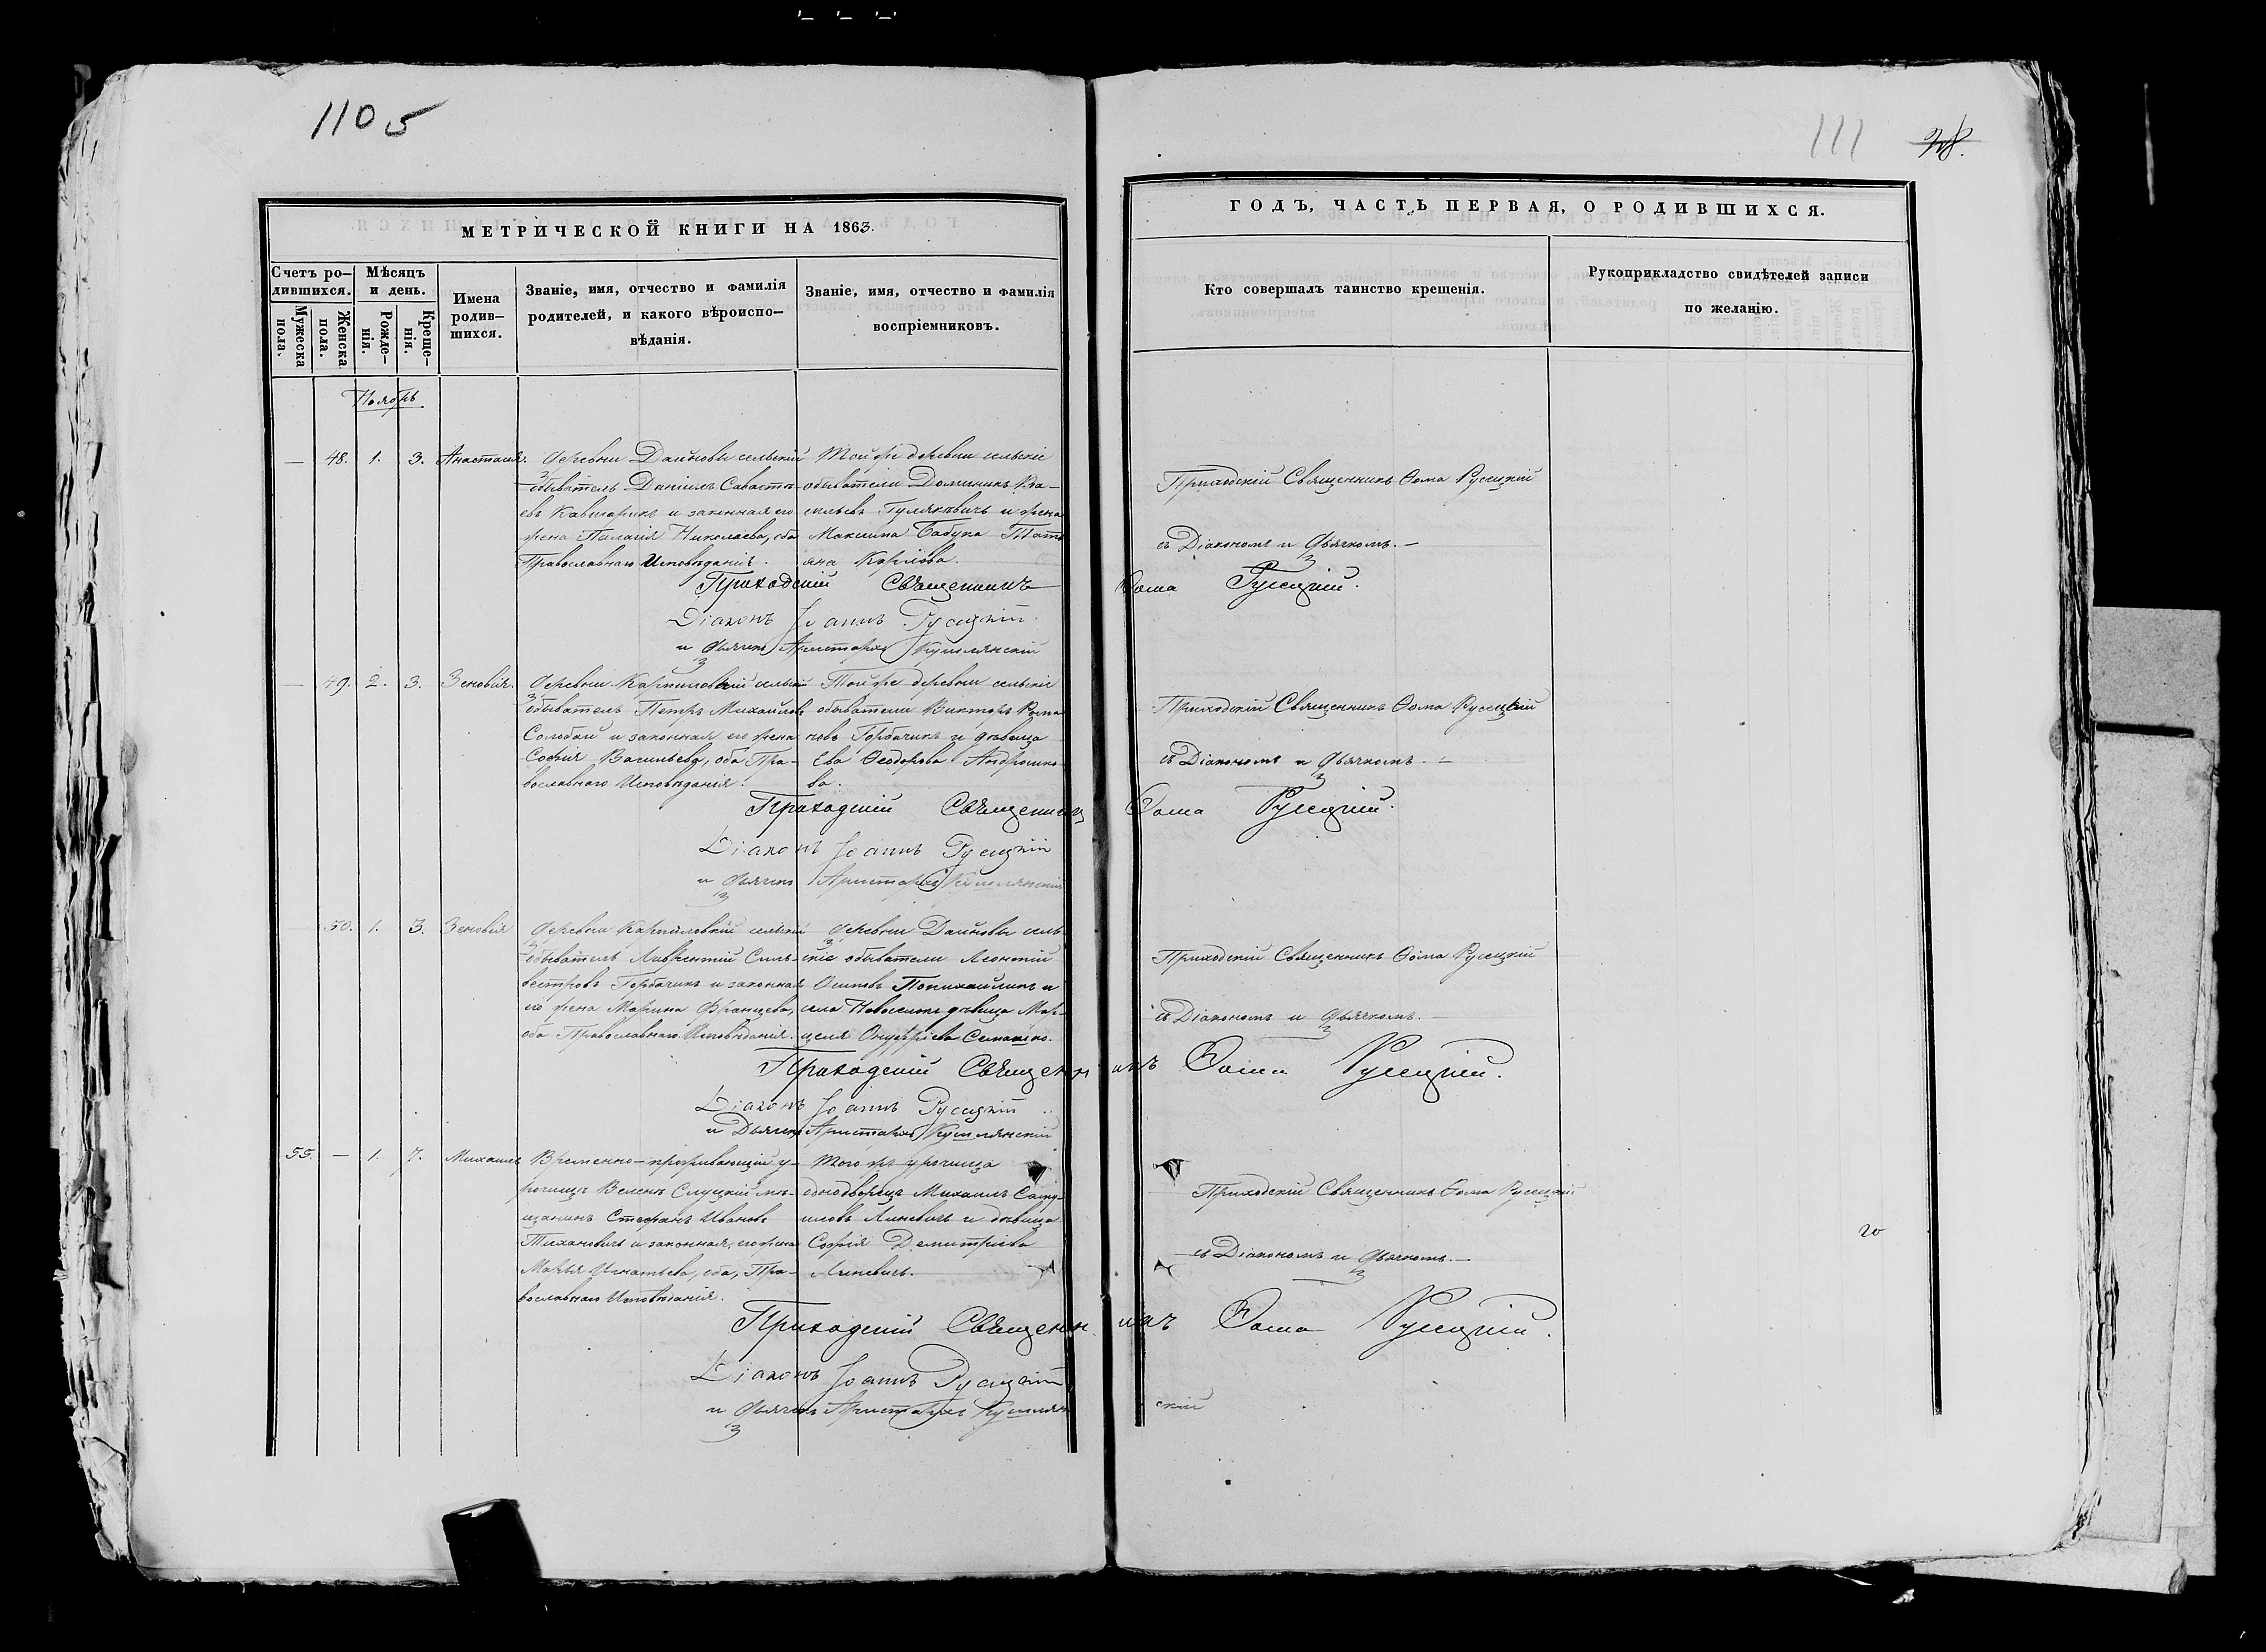 1105
111
28.
МЕТРИЧЕСКОЙ КНИГИ НА 1863.
Счетъ ро-
дившихся.
Мужеска
пола.
Женска
пола.
Мѣсяцъ
и день.
Рожде-
нія.
Креще-
нія.
Имена
родив-
шихся.
Званіе, имя, отчество и фамилія
родителей, и какого вѣроиспо-
вѣданія.
Званіе, имя, отчество и фамилія
воспріемниковъ.
ГОДЪ, ЧАСТЬ ПЕРВАЯ, О РОДИВШИХСЯ.
Кто совершалъ таинство крещенія.
Рукоприкладство свидѣтелей записи
по желанію.
Ноябрь
— 48. 1. 3. Анастасія.
Деревни Дайновы сельскій
обыватель Даніилъ Савастіа-
евъ и законная его
жена Палагія Николаева, оба
Православнаго Исповѣданія.
Той же деревни сельскіе
обыватели Доминикъ Ва-
сильевъ Гулякевичъ и жена
Максима Бабука Тать-
яна Карлова.
Приходскій Священникъ Ѳома Русецкій
съ Діакономъ и Дьячкомъ. —
Приходскій Священникъ Ѳома Русецкій.
Діаконъ Іоаннъ Русецкій
и Дьячекъ Аристархъ
— 49. 2. 3. Зеновія.
Деревни сельскій
обыватель Петръ Михайловъ
Солобай и законная его жена
Софія Васильева, оба Пра-
вославнаго Исповѣданія.
Той же деревни сельскіе
обыватели Викторъ Рома-
новъ Горбачикъ и дѣвица
Ева Ѳеодорова Андрошко-
ва.
Приходскій Священникъ Ѳома Русецкій
съ Діакономъ и Дьячкомъ. —
Приходскій Священникъ Ѳома Русецкій.
Діаконъ Іоаннъ Русецкій
и Дьячекъ Аристархъ
— 50. 1. 3. Зеновія
Деревни сельскій
обыватель Лаврентій Силь-
вестровъ Горбачикъ и законная
его жена Марина Францева,
оба Православнаго Исповѣданія.
Деревни Дайновы сель-
скіе обыватели Леонтій
Осиповъ и
села Новоселокъ дѣвица Мар-
целя Онуфріева Семашко.
Приходскій Священникъ Ѳома Русецкій
съ Діакономъ и Дьячкомъ. —
Приходскій Священникъ Ѳома Русецкій.
Діаконъ Іоаннъ Русецкій
и Дьячекъ Аристархъ
55. — 1. 7. Михаилъ
Временно-проживающій у-
рочищѣ Слуцкій мѣ-
щанинъ Стефанъ Ивановъ
Тихановичъ и законная его жена
Марья Игнатьева, оба, Пра-
вославнаго Исповѣданія.
Того же урочища
однодворецъ Михаилъ Саму-
иловъ Линевичъ и дѣвица
Софія Демитріева
Линевичъ.
Приходскій Священникъ Ѳома Русецкій
съ Діакономъ и Дьячкомъ. —
Приходскій Священникъ Ѳома Русецкій.
Діаконъ Іоаннъ Русецкій
и Дьячекъ Аристархъ